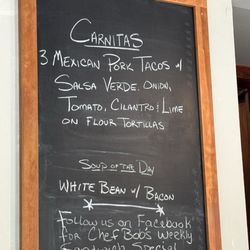 CARNITAS
3 MEXICAN PORK TACOS w/
SALSA VERDE, ONION,
TOMATO, CILANTRO & LIME
ON FLOUR TORTILLAS
SOUP OF THE DAY
WHITE BEAN w/ BACON
FOLLOW US ON FACEBOOK
FOR CHEF BOB'S WEEKLY
SANDWICH SPECIAL